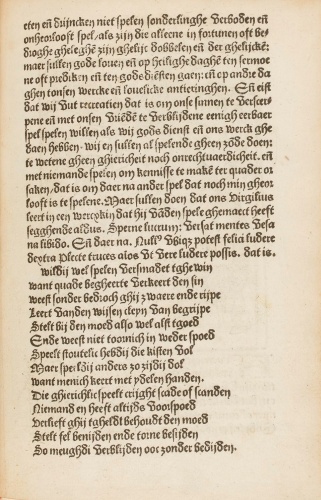 eten eñ drijncken niet spelen sonderlinghe verboden eñ
onheorloost spel/als zijn die alleene in fortunen oft be-
droghe gheleghē zijn ghelijc dobbelen eñ der ghelijcke:
maer sullen gode louen eñ op heilighe daghē ten sermoe
ne oft predikē eñ ten gods diēsten gaen: eñ op andre da
ghen tonsen wercke eñ louelicke antieringhen. Eñ eist
dat wij vut recreatien dat is om onse sinnen te verscer-
pene eñ met onsen vriēdē te verblijdene eenigh eerbaer
spel spelen willen als wij gods dienst eñ ons werck ghe
daen hebben. wij en sullen al spelende gheen zōde doen:
te wetene gheen ghiericheit noch onrechtuaerdicheit. eñ
met niemande spelen om kennisse te makē ter quader or
saken/dat is om daer na ander spel dat noch min gheor
looft is te spelene. Maer sullen doen dat ons Virgilius
leert in een wercxkin dat hij vādē spele ghemaect heeft
segghende aldus. Sperne lucrum: versat mentes vesa
na libido. Eñ daer na. Null⁹ vbiqz potest felici ludere
dextra Plecte truces aīos vt vere ludere possis. dat is.
wildij wel spelen versmadet tghewin
want quade begheerte verkeert den sin
weest sonder bedroch ghij zwaere ende rijpe
Leert vanden wijsen cleyn van begrijpe
Stelt bij den moed also wel alst tgoed
Ende weest niet toornich in weder spoed
Speelt stoutelic hebdij die kisten vol
Maer speeldij anders zo zijdij dol
want menich keert met ydelen handen.
Die ghierichlic speelt crijght scade of scanden
Niemand en heeft altijds voorspoed
verliest ghij tgheldt behoudt den moed
Stelt fel benijden ende torne besijden
So meughdi verblijden ooc zonder bedijden.